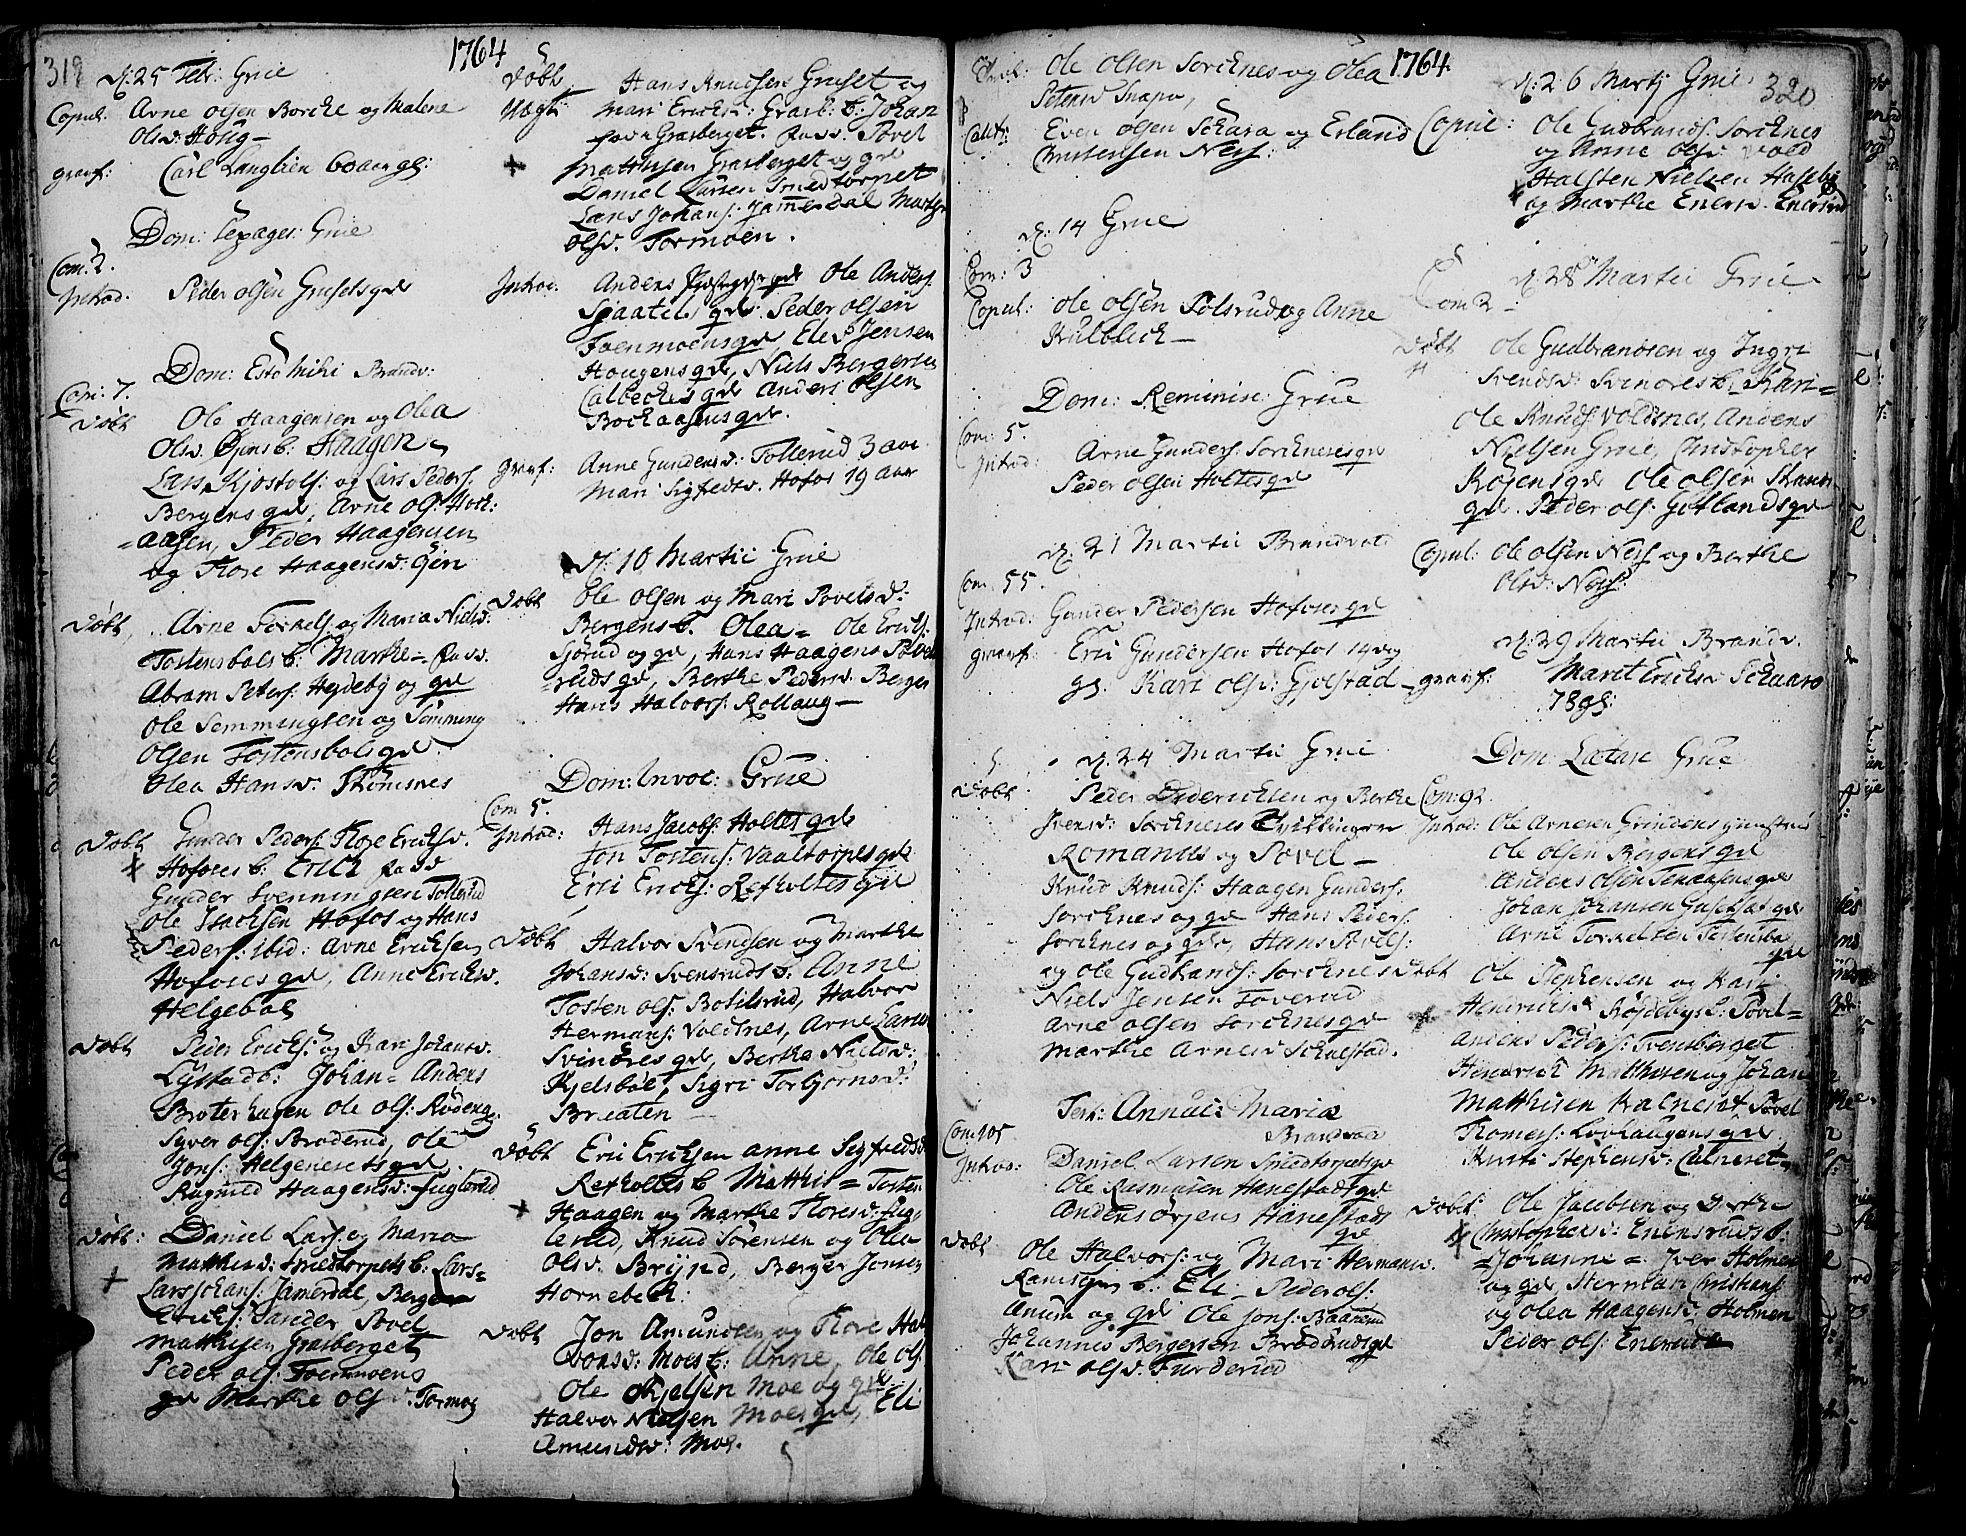 319
1764
d: 25 Febr: Grue
Copul: Arne Olsen Borcke og Malene
Olsd: Hong
graf: Carl Langlien 60 aar gl:
Dom: Sexages: Grue
Com: 2.
Introd: Peder Olsen Grusetsqde
Dom: Esto Mihi Brandv:
Com: 7.
Døbt Ole Haagensen og Olea
Olsd. b: Haagen
Lars Kjøstols: og Lars Peders.
Bergens qde, Arne Ols: Hock:
=aasen, Peder Haagensen
og Thore Haagensd:
Døbt, Arne Torkels: og Maria Nielsd:
Tostensbøls b: Marthe = favv.
Abram Peters: Hejdeby og qde
Ole Semmingsen og Semming
Olsen Tostensbøls qde
Olea Hansd. Strømsnes
Døbt Gunder Peders: Thore Ericksd.
Hofoses b: Erich favv
Gunder Svenningsen Tollerud
Ole Hofos og Hans
Peders: ibid: Arne Ericksen
Hofoses qde, Anne Ericksd.
Helgebøl
Døbt Peder Ericks: og Kari Johansd.
Lystad b: Johan = Anders
Braterhagen Ole Ols: Rødeng.
Syver Ols: Braderud, Ole
Jons: Helgeneset qde.
Ragnild Haagensd: Fuglerud
Døbt: Daniel Lars: og Maria
Matthisd: Smedtorpets b: Lars=
Lars Johans: Jamerdal, Berger
Ericks: Sander Povel
Matthisen Grasberget
Peder Ols: Foenmoens
qde Marthe Olsd: Tormoen
Døbt Hans Knudsens Gruset og
Ægt: Mari Ericksd: Grasb: b: Johan
Grasberget. favv. Povel
Matthisen Grasberget og qde
Daniel Larsen Smedtorpet
Lars Johans: Jammerdal Marthe
Olsd. Tormoen.
Introd: Anders qde Ole Anders:
Spaatels qde Peder Olsen
Foenmoens qde, Elef Jensen
Hougens qde, Niels Bergersen
Calbeckes qde Anders Olsen
Bockaasens qde.
graf: Anne Gundersd: Tollerud 3 aar
Mari Sigfredsd. Hofos 19 aar
d: 10 Martii Grue
Døbt Ole Olsen og Mari Povelsd:
Bergens b. Olea = Ole Ericks:
Sjørud og qde, Hans Haagens: Povel
=ruds qde, Berthe Pedersd: Berger
Hans Halvors: Rollaug
Dom: Invoc: Grue
Com 5.
Introd: Hans Jacobs: Holtes qde
Jon Tostens: Vaaltorpes qde
Eric Ericks: Refholtes qde
Døbt Halvor Svendsen og Marthe
Johansd: Svensruds b: Anne
Tosten Ols: Botilsrud, Halvor
Hermans: Voldsnes, Arne Larsen
Svinøres qde, Berthe Nielsd:
Kjelsbøl, Sigri Torbjornsd:
Braaten
Døbt Eric Ericksen Anne Sigfredsd
Refholtes b Matthis = Tosten
Haagen og Marthe Thoresd: Fug:
lerud, Knud Sørensen og Olia
Olsd. Brynd, Berger Jonsen
Hornebeck:
Døbt Jon Amundsen og Thore Hal
vorsd: Moes b: Anne, Ole Ols:
Ole Kjelsen Moe og qde
Halvor Nielsen Moes qde, Eli
Amundsd: Moe.
1764
320
Ole Olsen Sorcknes og Olea
Petersd Snapa,
Even Olsen Schara og Erland
Christensen Ness:
d: 14 Grue
Com: 3
Copul: Ole Olsen Polsrud og Anne
Kulbleck
Dom: Reminisc: Grue
Com: 5.
Introd: Arne Gunders: Sorckneses qde
Peder Olsen Holtes qde
d: 21 Martii Brandval
Com: 55.
Introd: Gunder Pedersen Hofoses qde
graf: Eric Gundersen Hofos 14 dag
gl. Kari Olsd: Gjølstad
d: 24 Martii Grue
Døbt Peder Didericksen og Berthe
Svensd: Sorckneses Tvillinger
Romanus og Povel
Knud Knuds: Haagen Gunders:
Sorcknes og qde Hans Peders:
Sorcknes og qde, Hans Povels:
og Ole Gudbrands: Sorcknes
Niels Jensen Foverud
Arne Olsen Sorcknes qde
Marthe Arnesd Schulstad.
Fest: Annunc: Mariæ
Brandval
Com: 105
Introd: Daniel Larsen Smedtorpets qde
Ole Rasmusen Hanestads qde
Anders Ørjens Hanestads
qde
Døbt Ole Halvors: og Mari Hermansd.
b: Eli = Peder Ols:
og qde Ole Jons: Baanrud
Johannes Bergersen Braderuds qde
Kari Olsd: Furderud
d: 26 Martij Grue
Copul: Ole Gudbrands: Sorcknes
og Anne Olsd: Vold
Halsten Nielsen Haseby
og Marthe Enersd. Enersrud
d: 28 Martii Grue
Com 2
Døbt Ole Gudbrandsen og Ingri
Svendsd: Svinøres b: Kari=
Ole Knuds: Voldsnes, Anders
Nielsen Grue, Christopher
Rosens qde Ole Olsen
qde. Peder Ols: Gotlands qde
Copul: Ole Olsen Ness og Berthe
Olsd: Ness:
d: 29 Martii Brandv.
graf: Marit Ericksd Scharo
78 gl:
Dom Lætare Grue
Com: 92.
Introd: Ole Arnesen Grindens
Ole Olsen Bergens qde
Anders Olsen qde
Johan Johansen Gusetsæt qde
Arne Torkelsen
qde
Døbt Ole Stephensen og Kari
Hendricksd Røgdebyes b: Povel=
Anders Peders: Svensberget
Hendrick Matthisen og Johan
Matthisen Kalneset, Povel
Thomes: Lovhaugens qde
Kirsti Stephensd: Calneset
Døbt Ole Jacobsen og Berthe
Christophersd: Enersruds b:
=Johanne= Iver Holmen
og qde, Herman Christians:
og Olea Haagensd: Holmen
Peder Ols: Enersrud